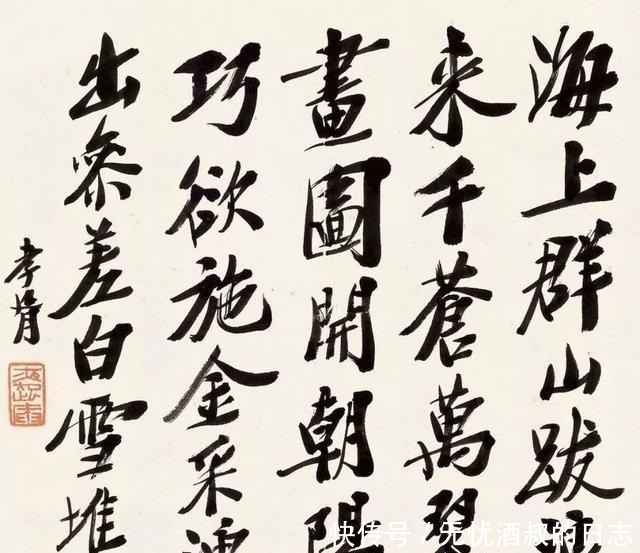 海上群山跋
来千蒼萬翠
畫圖開朝陽
巧欲施金采
出參差白雪堆
孝胥
快传号 / 无忧酒叔的日志